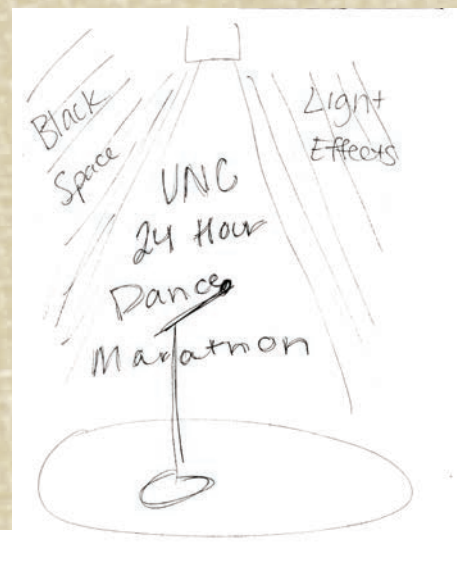 Black
Space
Light
Effects
UNC
24 Hour
Dance
Marathon